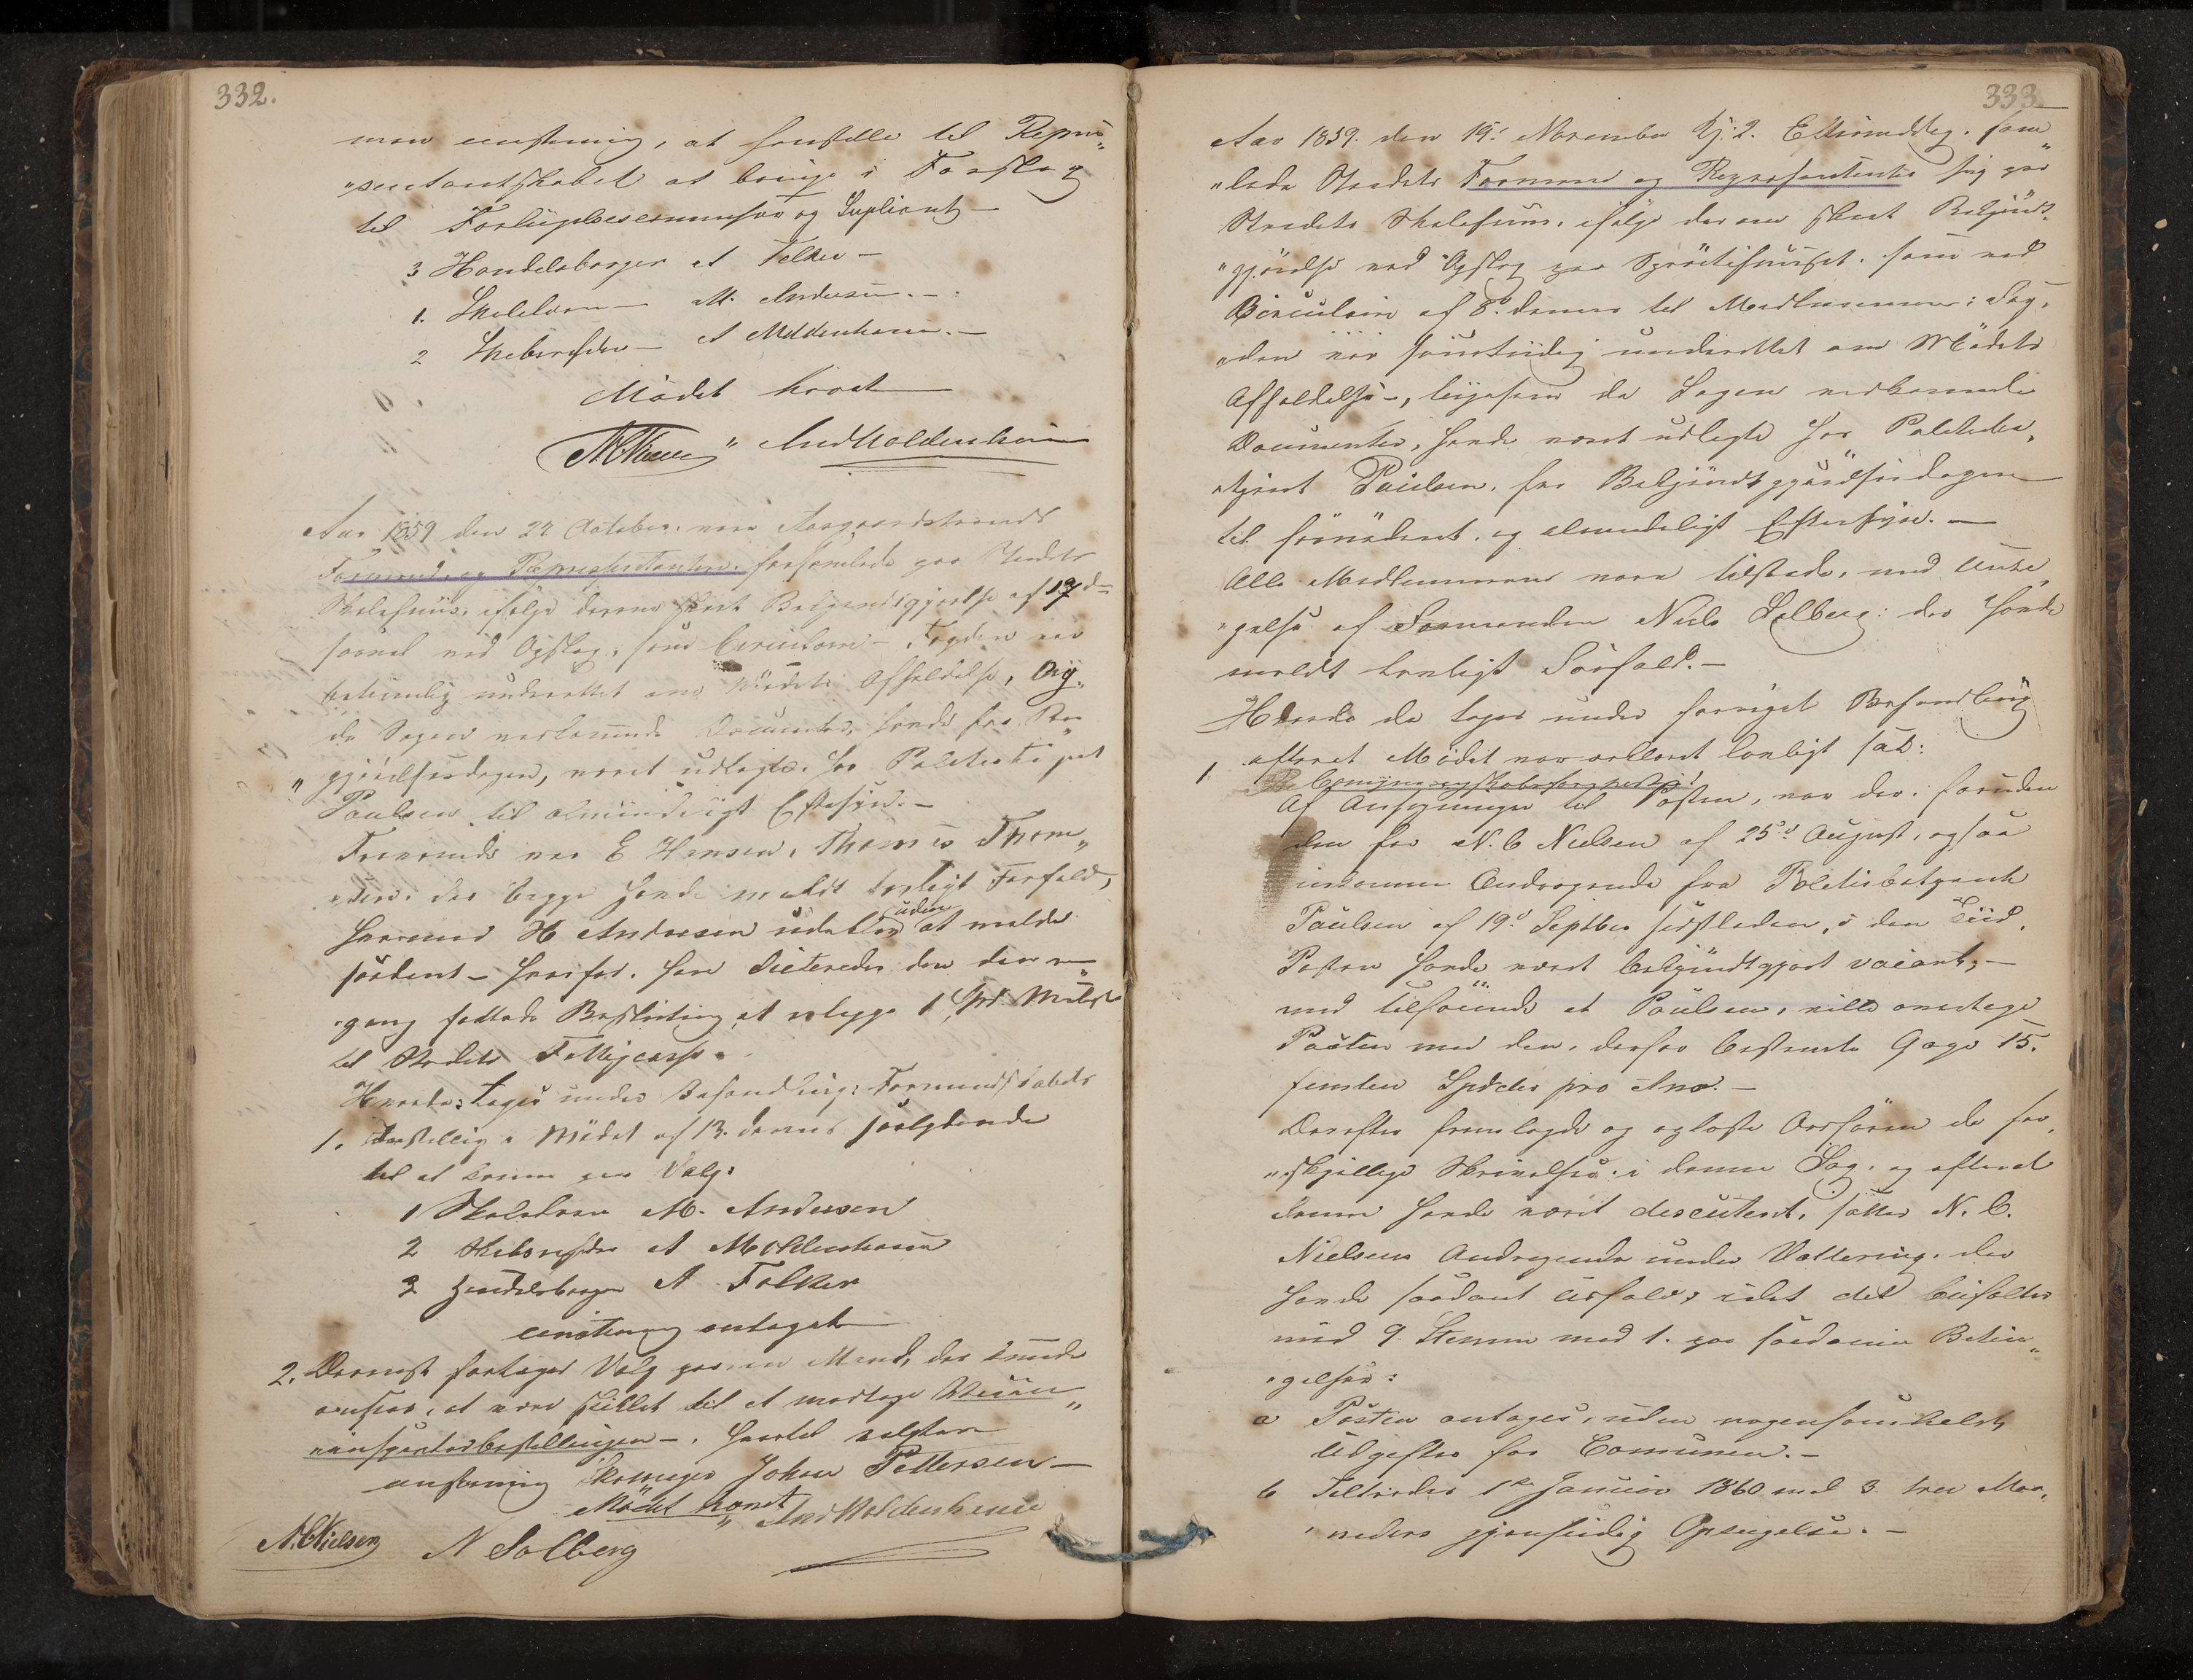 332.
man eenstemig, at henstille til Repræ„
„sentantskabet at bringe i Forslag
til Forligelsescommissær og Supliant
3 Handelsborger A Felker –
1. Skolelærer – M. Andersen. –
2 Skibsreder – A Moldenhauer. –
Mödet hævet
NCNielsen " AndMoldenhauer
Aar 1859 den 24 October. vare Aasgaardstrands
Formænd og Repræsentantere forsamlede paa Stedets
Skolehuus, ifølge derom skeet Bekjendtgjørelse af 19de
saavel ved Opslag, som Circulaire –. Fogden var
betimelig underrettet om Mödets Afholdelse,
da Sagen vedkommende Documenter, havde fra Be„
„gjørelsesdagen, været udlagte hos Politibetjent
Paulsen til almindeligt Eftersyn. –
Fraværende var E Hansen, Thomas Thom„
„sen. der begge havde meldt lovligt Forfald,
hvorimod H Andresen udeblev uden at melde
saadant – hvorfor. han dicteredes den den
gang fattede Beslutning at erlægge 1 Spd Mulct
til Stedets Fattigcasse.
Hvorda toges under Behandling: Formandskabets
1. Indstilling i Mödet af 13. dennes saalydende
til at komme paa Valg:
1 Skolelærer M. Andersen
2 Skibsreder A Moldenhauer
3 Handelsborger A Felker
eenstemig antaget
2. Dernæst foretages Valg paa en Mand, der kunde
ansees, at være skikket til at modtage
inspecteurbestillingen –. hvortil valgtes
eenstemig Skomager Johan Pettersen –
Mödet hævet
NCNielsen N Solberg " And Moldenhauer
333.
Aar 1859. den 19. November Kl: 2. Eftermiddag. sam„
„lede Stedets Formænd og Repræsentanter sig paa
Stedets Skolehuus, ifølge derom skeet Bekjendt„
„gjörelse ved Opslag paa Spröitehuuset. som ved
Circulaire af 8de dennes til Medlemmerne: Fog„
„den var samtidig underrettet om Mödets
Afholdelse –, ligesom de Sagen vedkommende
Documenter, havde været udlagte hos Politibe„
„tjent Paulsen. fra Bekjendtgjörelsesdagen
til fornödent. og almindeligt Eftersyn. –
Alle Medlemmerne vare tilstede, med Undta„
„gelse af Formanden Niels Solberg: der havde
meldt lovligt Forfald. –
Hvorda da toges under foreviget Behandling
efterat Mödet var erklæret lovligt sat:
1
Af Ansøgninger til Posten, var der. foruden
den fra N. C Nielsen af 25de August, ogsaa
indkommen Andragende fra Politiebetjent
Paulsen af 19de Septbr sidstleden, i den Tiid,
Posten havde været bekjendtgjort vacant, –
med Tilföiende at Paulsen, ville modtage
Posten med den. derfor bestemte Gage 15.
femten Spdaler pro Anno. –
Derefter fremlagde og oplæste Ordføreren de for„
„skjellige Skrivelser i denne Sag. og efterat
denne havde været discuteret, sattes N. C.
Nielsens Andragende under Vottering. der
havde saadant Udfald, idet det bifaldtes
med 9 Stemmer mod 1. paa saadanne Betin„
„gelser:
a Posten antages, uden nogensomhelst
Udgifter for Communen. –
b Tiltrædes 1ste Januar 1860 med 3 tre Maa„
„neders gjensidig Opsigelse. –